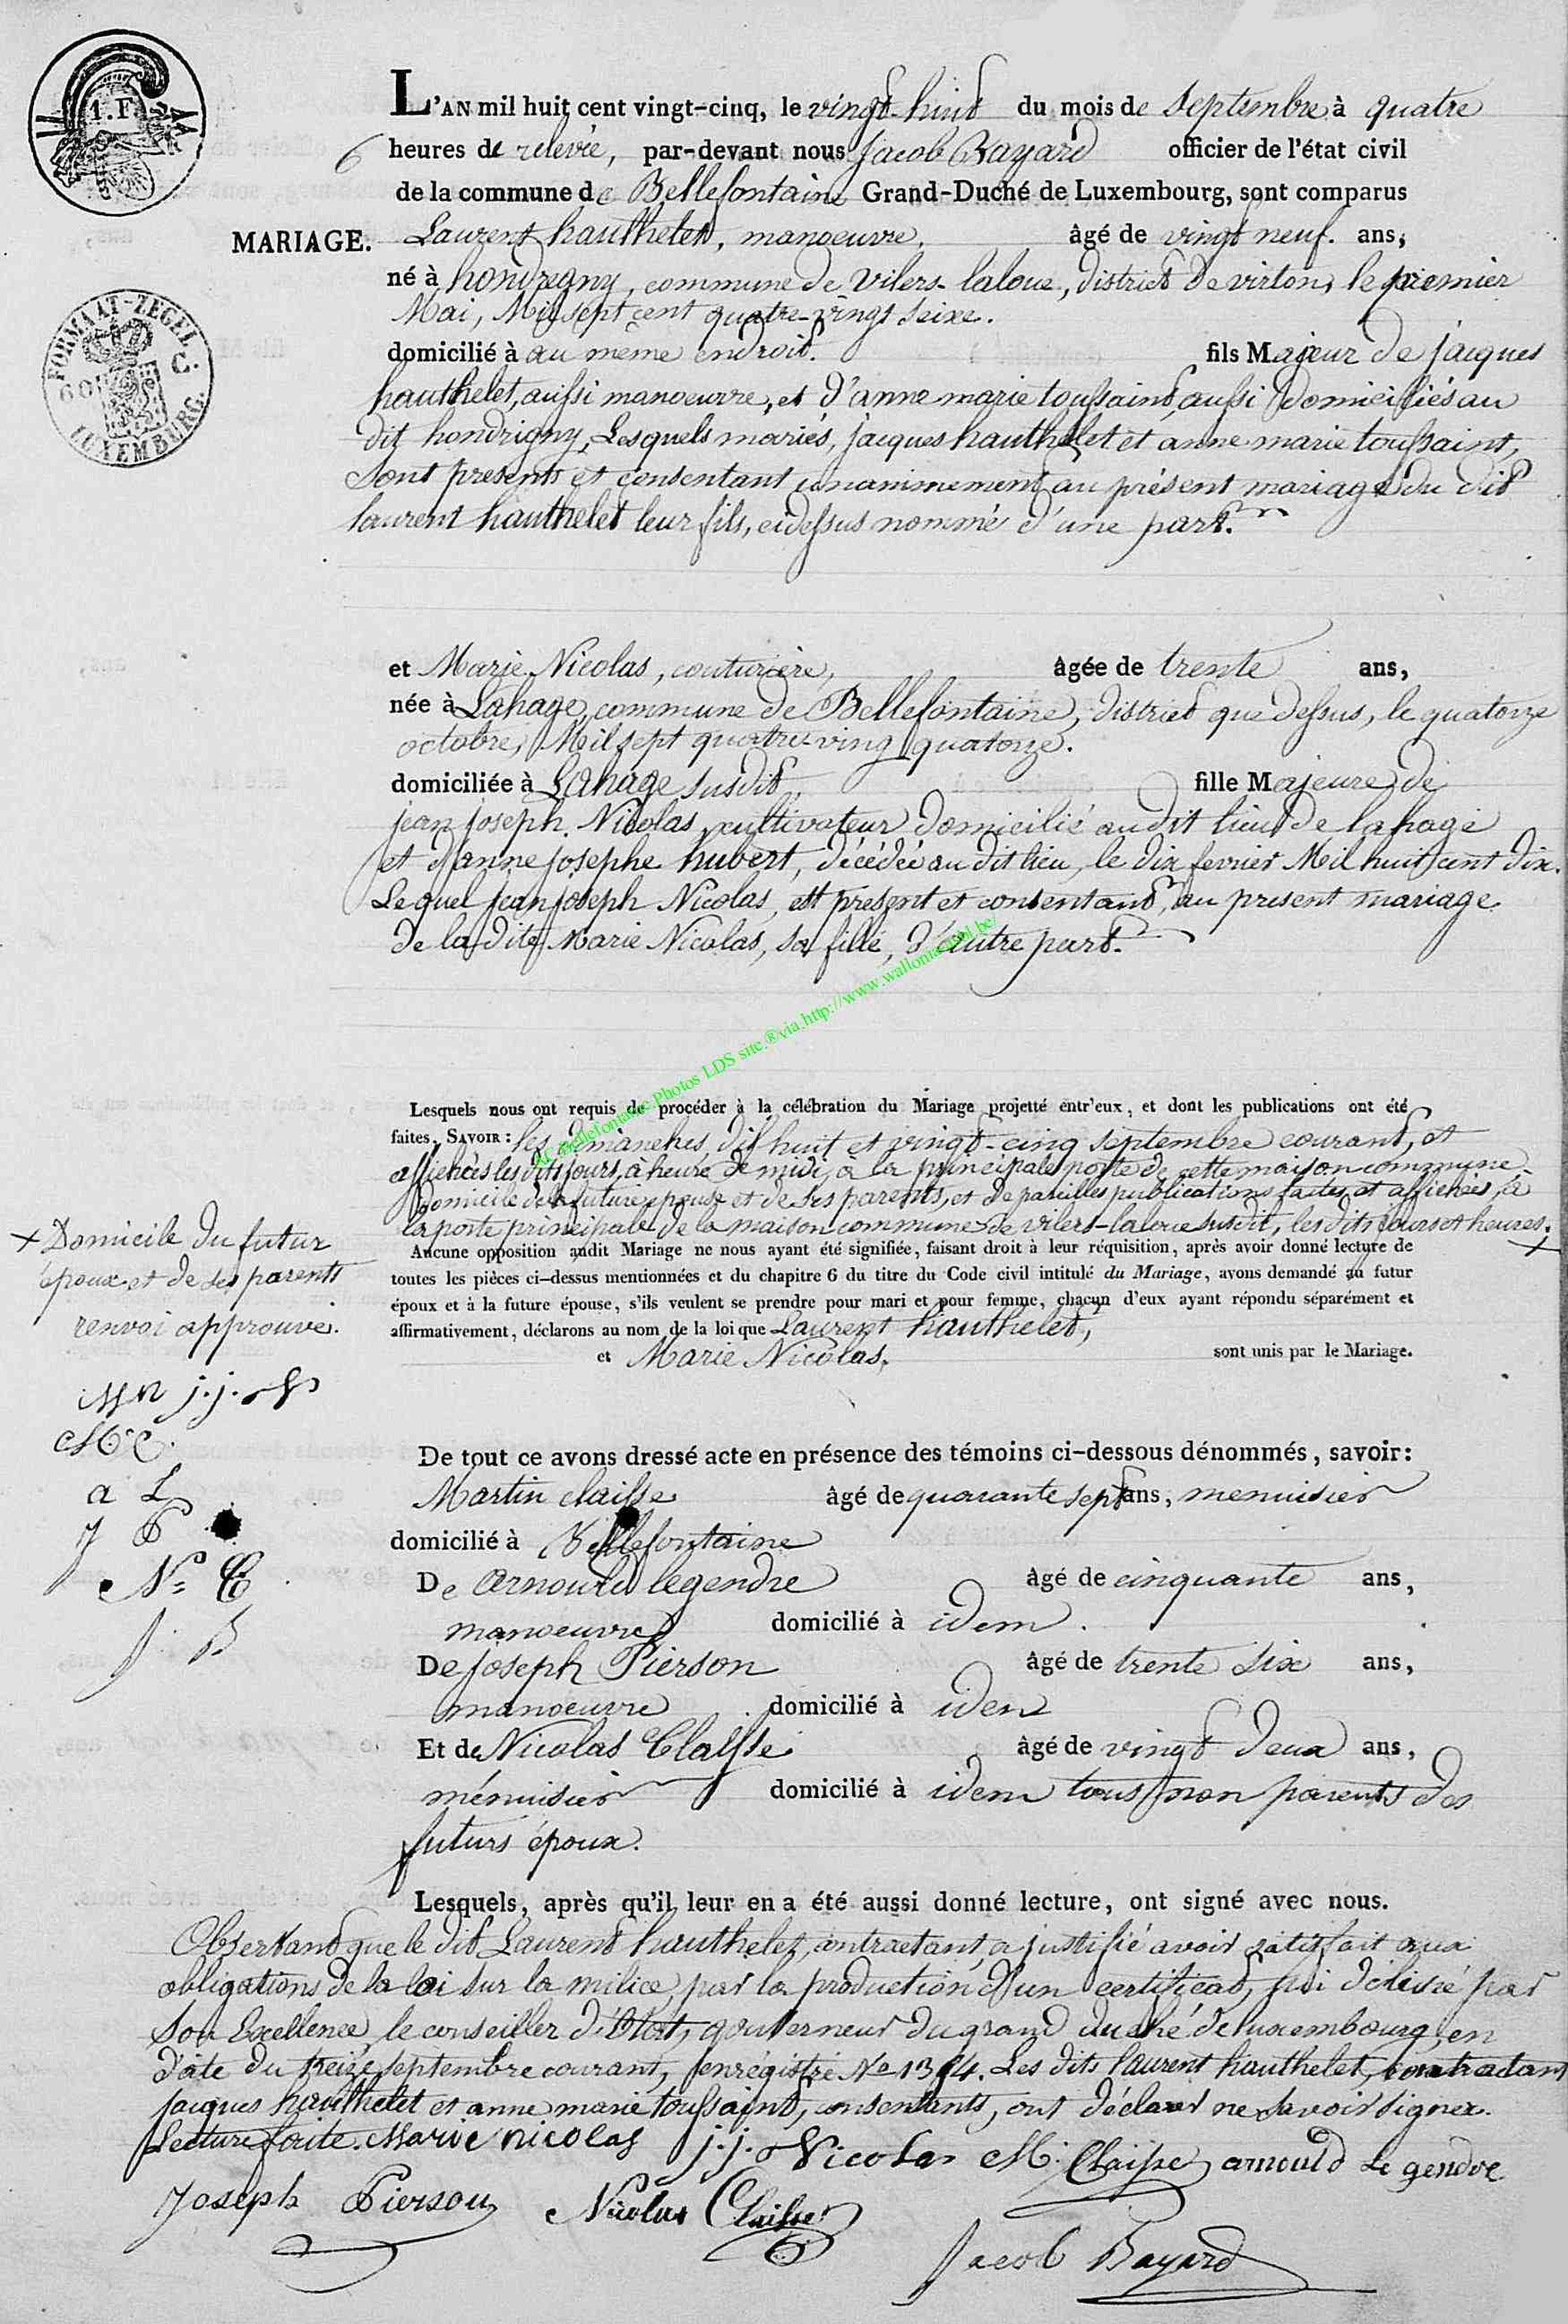 1. F
L'AN mil huit cent vingt-cinq, le vingt-huit du mois de septembre à quatre
6 heures de relevée, par-devant nous Jacob Bayard officier de l'état civil
de la commune de Bellefontaine Grand-Duché de Luxembourg, sont comparus
MARIAGE. Laurent hauthelet, manoeuvre, âgé de vingt neuf. ans,
né à hondregny, commune de vilers-laloue, district de virton, le premier
Mai, Mil sept cent quatre-vingt seixe.
FORMAAT-ZEGEL
60 C.
LUXEMBURG.
domicilié à au même endroit. fils Majeur de jacques
hauthelet, aussi manoeuvre, et d'anne marie toussaint, aussi domiciliés au
dit hondrigny, Lesquels mariés, jacques hauthelet et anne marie toussaint,
sont presents et consentant unanimement au présent mariage du dit
laurent hauthelet leur fils, cidessus nommé d'une part.
et Marie Nicolas, couturière, âgée de trente ans,
née à Lahage, commune de Bellefontaine, district que dessus, le quatorze
octobre, Mil sept quatre-ving quatorze.
domiciliée à Lahage susdit, fille Majeure de
jean joseph Nicolas, cultivateur domicilié audit lieu de lahage
et d'anne josephe hubert, décédée au dit lieu, le dix fevrier Mil huit cent dix.
Lequel jean joseph Nicolas, est present et consentant, au present mariage
de la dite Marie Nicolas, sa fille, d'autre part.
Bellefontaine Photos LDS site ® via http://www.wallonia
Lesquels nous ont requis de procéder à la célébration du Mariage projetté entr'eux, et dont les publications ont été
faites, SAVOIR: les dimanches, dix huit et vingt-cinq septembre courant, et
affichées les dits jours, à heure de midi, a la principale porte de cette maison commune
domicile de la future epouse et de ses parents, et de pareilles publications faites et affichées, à
la porte principale de la maison commune de vilers-laloue susdit, les dits jours et heures. +
+ Domicile du futur
époux et de ses parents
renvoi approuvé.
Aucune opposition audit Mariage ne nous ayant été signifiée, faisant droit à leur réquisition, après avoir donné lecture de
toutes les pièces ci-dessus mentionnées et du chapitre 6 du titre du Code civil intitulé du Mariage, avons demandé au futur
époux et à la future épouse, s'ils veulent se prendre pour mari et pour femme, chacun d'eux ayant répondu séparément et
affirmativement, déclarons au nom de la loi que Laurent hauthelet,
et Marie Nicolas, sont unis par le Mariage.
j.j. N
M. C.
a L
J P
N. C
J. B
De tout ce avons dressé acte en présence des témoins ci-dessous dénommés, savoir:
Martin claisse âgé de quarante sept ans, menuisier
domicilié à Bellefontaine
De Arnould legendre âgé de cinquante ans,
manoeuvre domicilié à idem.
De joseph Pierson âgé de trente six ans,
manoeuvre domicilié à idem
Et de Nicolas Claisse âgé de vingt deux ans,
ménuisier domicilié à idem tous non parents des
futurs époux.
Lesquels, après qu'il leur en a été aussi donné lecture, ont signé avec nous.
Observant que le dit Laurent hauthelet, contractant, a justifié avoir satisfait aux
obligations de la loi sur la milice, par la production d'un certificat, lui délivré par
Son Excellence, le conseiller d'Etat, gouverneur du grand duché de luxembourg, en
date du treize septembre courant, enrégistré No Les dits laurent hauthelet, contractant
jacques hauthelet et anne marie toussaint, consentants, ont déclaré ne savoir signer.
Lecture faite. Marie nicolas j.j. Nicolas M. Claisse arnould Le gendre
Joseph Pierson Nicolas Claisse
Jacob Bayard